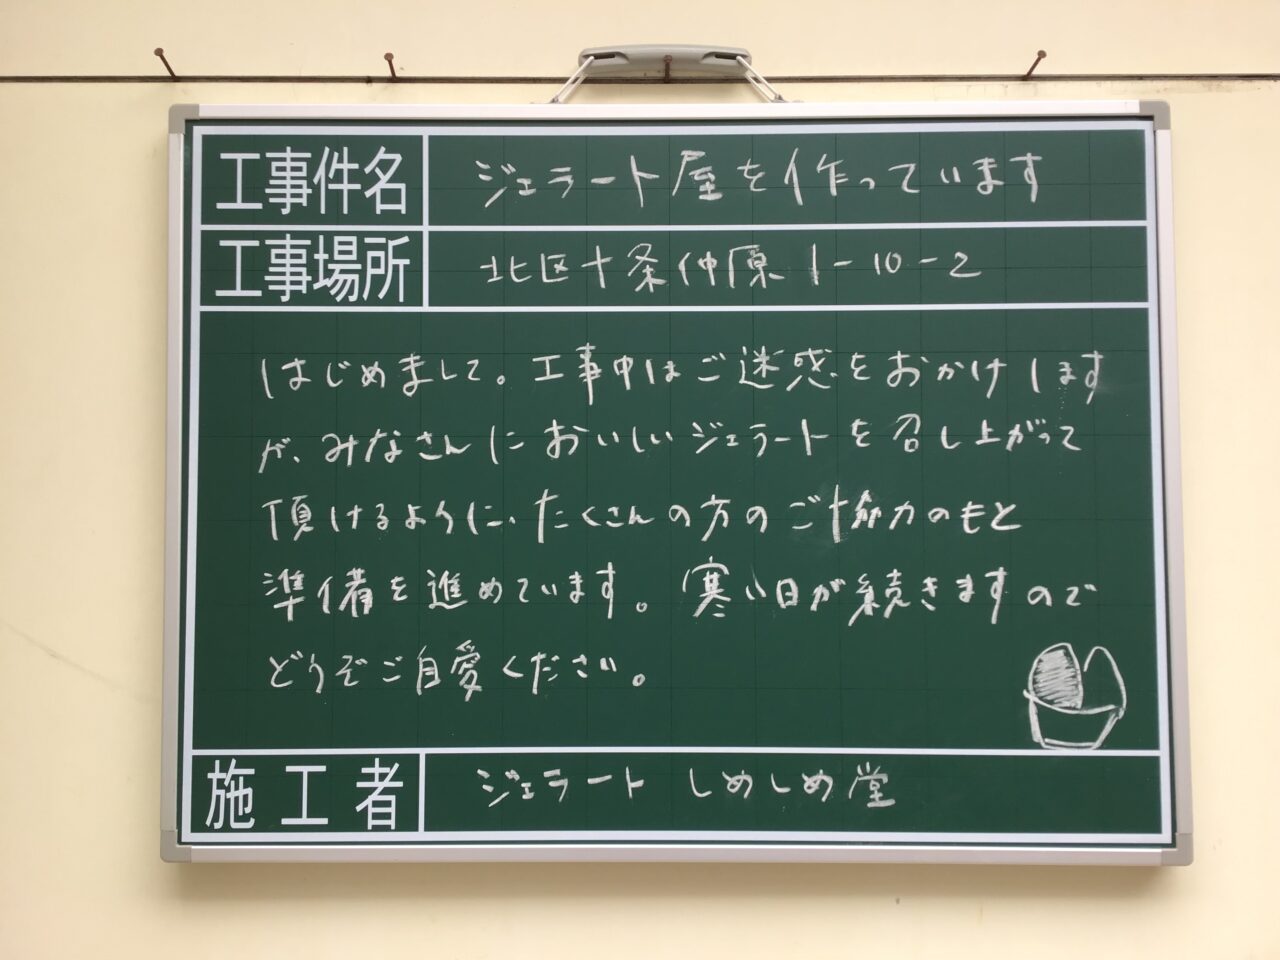 工事件名 ジェラート屋を作っています
工事場所 北区十条仲原1-10-2
はじめまして。工事中はご迷惑をおかけします
が、みなさんにおいしいジェラートを召し上がって
頂けるように、たくさんの方のご協力のもと
準備を進めています。寒い日が続きますので
どうぞご自愛ください。
施工者 ジェラート しめしめ堂